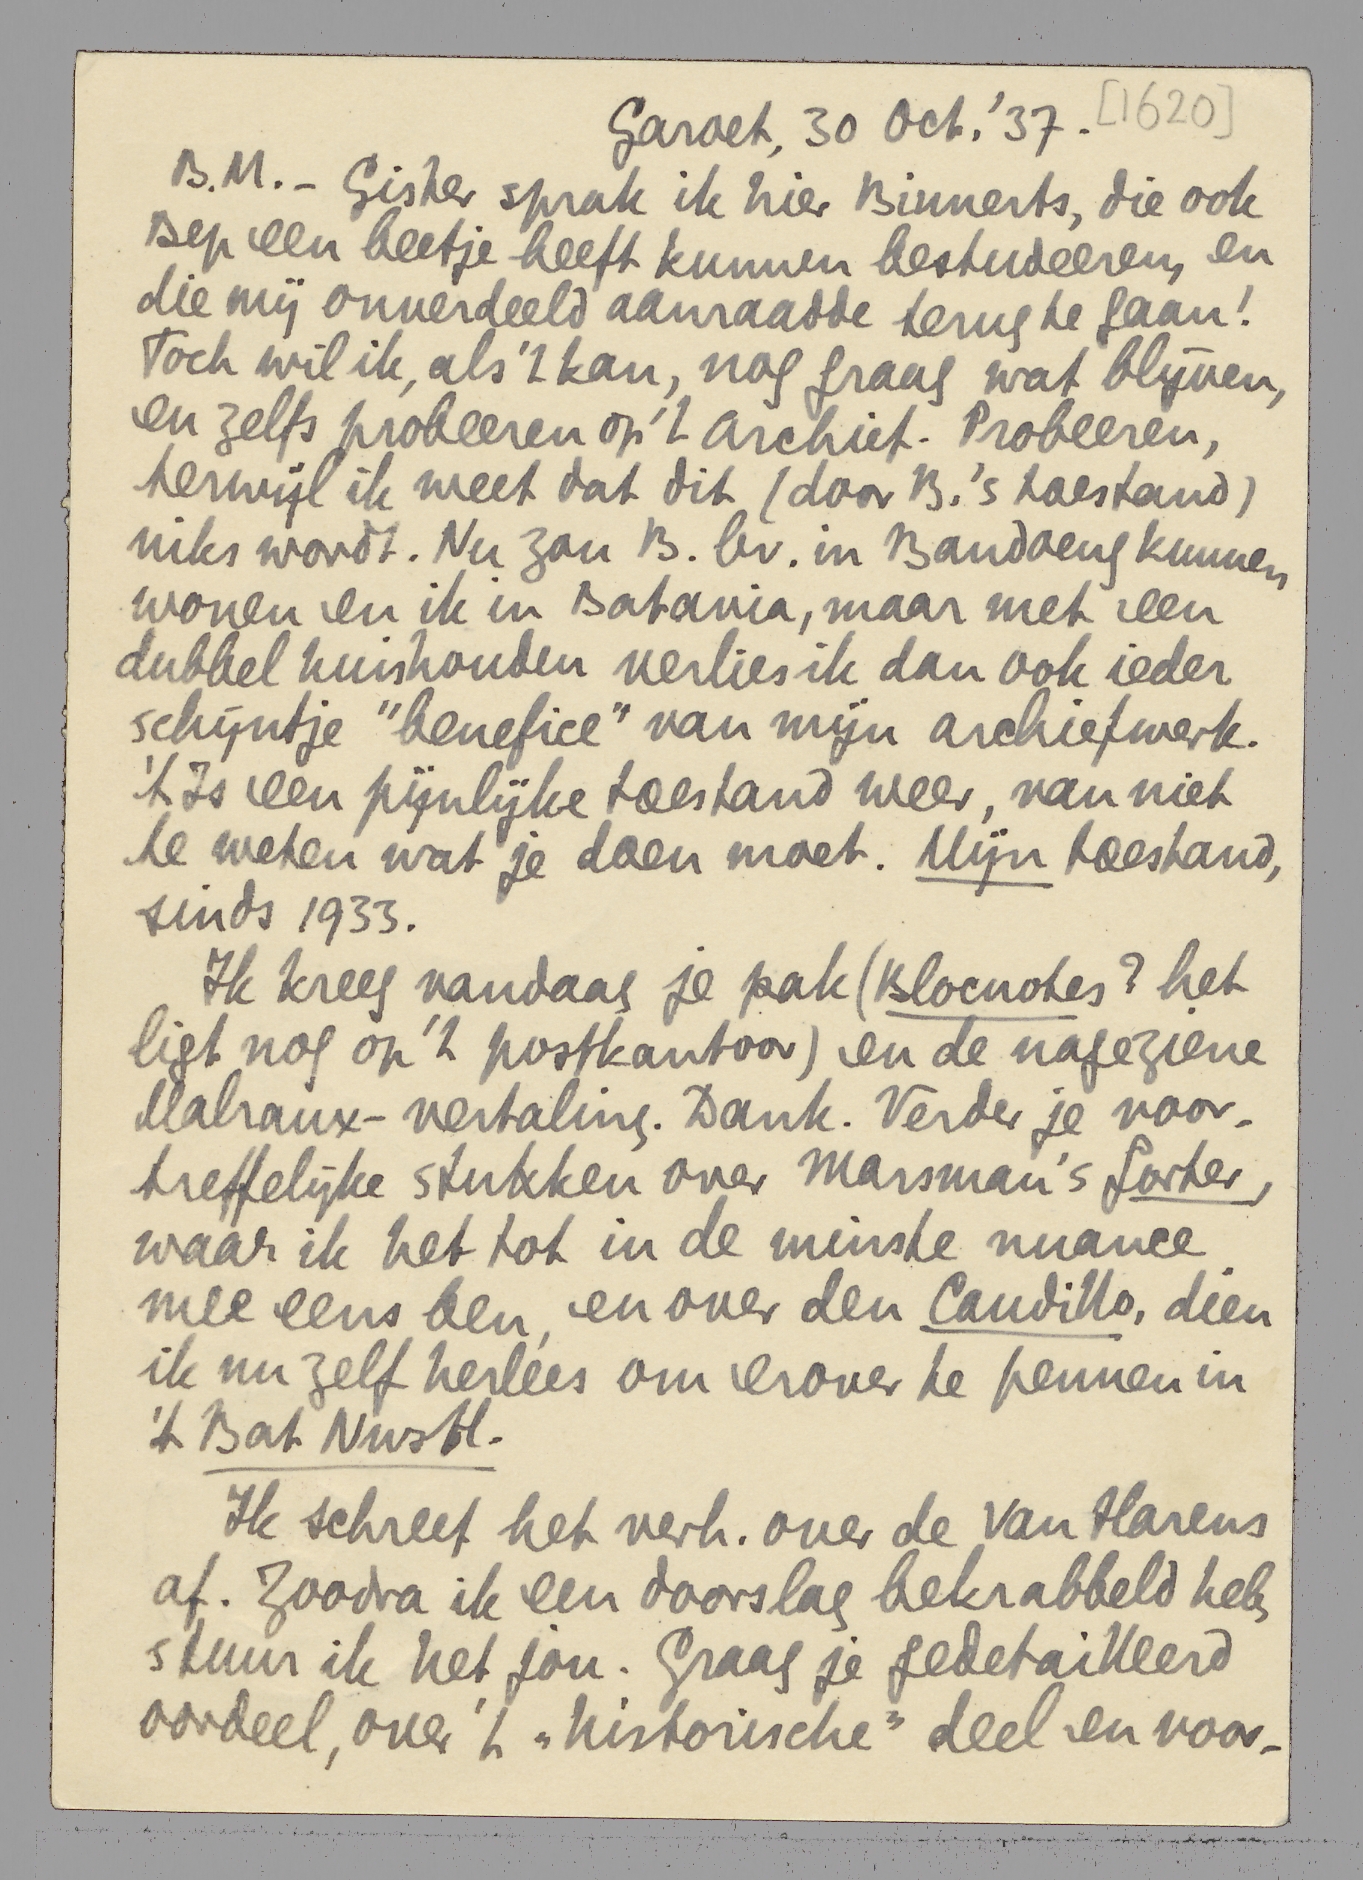 Garoet, 30 Oct. '37. [1620]
B.M. - Gister sprak ik hier Binnerts, die ook
Bep een beetje heeft kunnen bestudeeren, en
die mij onverdeeld aanraadde terug te gaan!
Toch wil ik, als 't kan, nog graag wat blijven,
en zelfs probeeren op 't archief. Probeeren,
terwijl ik weet dat dit (door B.'s toestand)
niks wordt. Nu zou B. bv. in Bandoeng kunnen
wonen en ik in Batavia, maar met een
dubbel huishouden verlies ik dan ook ieder
schijntje "benefice" van mijn archiefwerk.
't Is een pijnlijke toestand weer, van niet
te weten wat je doen moet. Mijn toestand,
sinds 1933.
Ik kreeg vandaag je pak (Blocnotes? het
ligt nog op 't postkantoor) en de nageziene
Malraux-vertaling. Dank. Verder je voor-
treffelijke stukken over Marsman's Gorter,
waar ik het tot in de minste nuance
mee eens ben, en over den Caudillo, dien
ik nu zelf herlees om erover te pennen in
't Bat Nwsbl.
Ik schreef het verh. over de Van Harens
af. Zoodra ik een doorslag bekrabbeld heb,
stuur ik het jou. Graag je gedetailleerd
oordeel, over 't „historische" deel en voor-